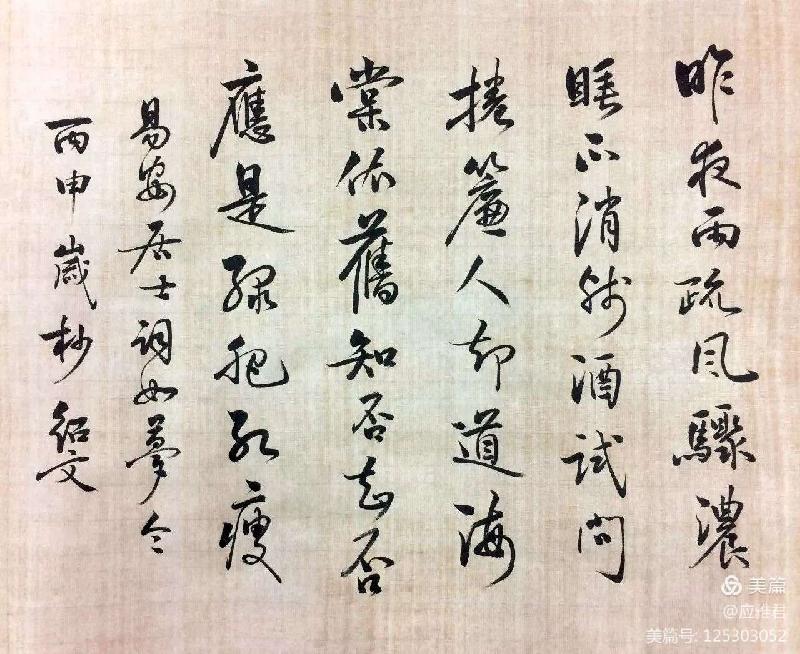 昨夜雨疏風驟濃
睡不消殘酒試問
捲簾人却道海
棠依舊知否知否
應是綠肥紅瘦
易安居士詞如夢令
丙申歲杪紹文
美篇
@应雅君
美篇号: 125303052